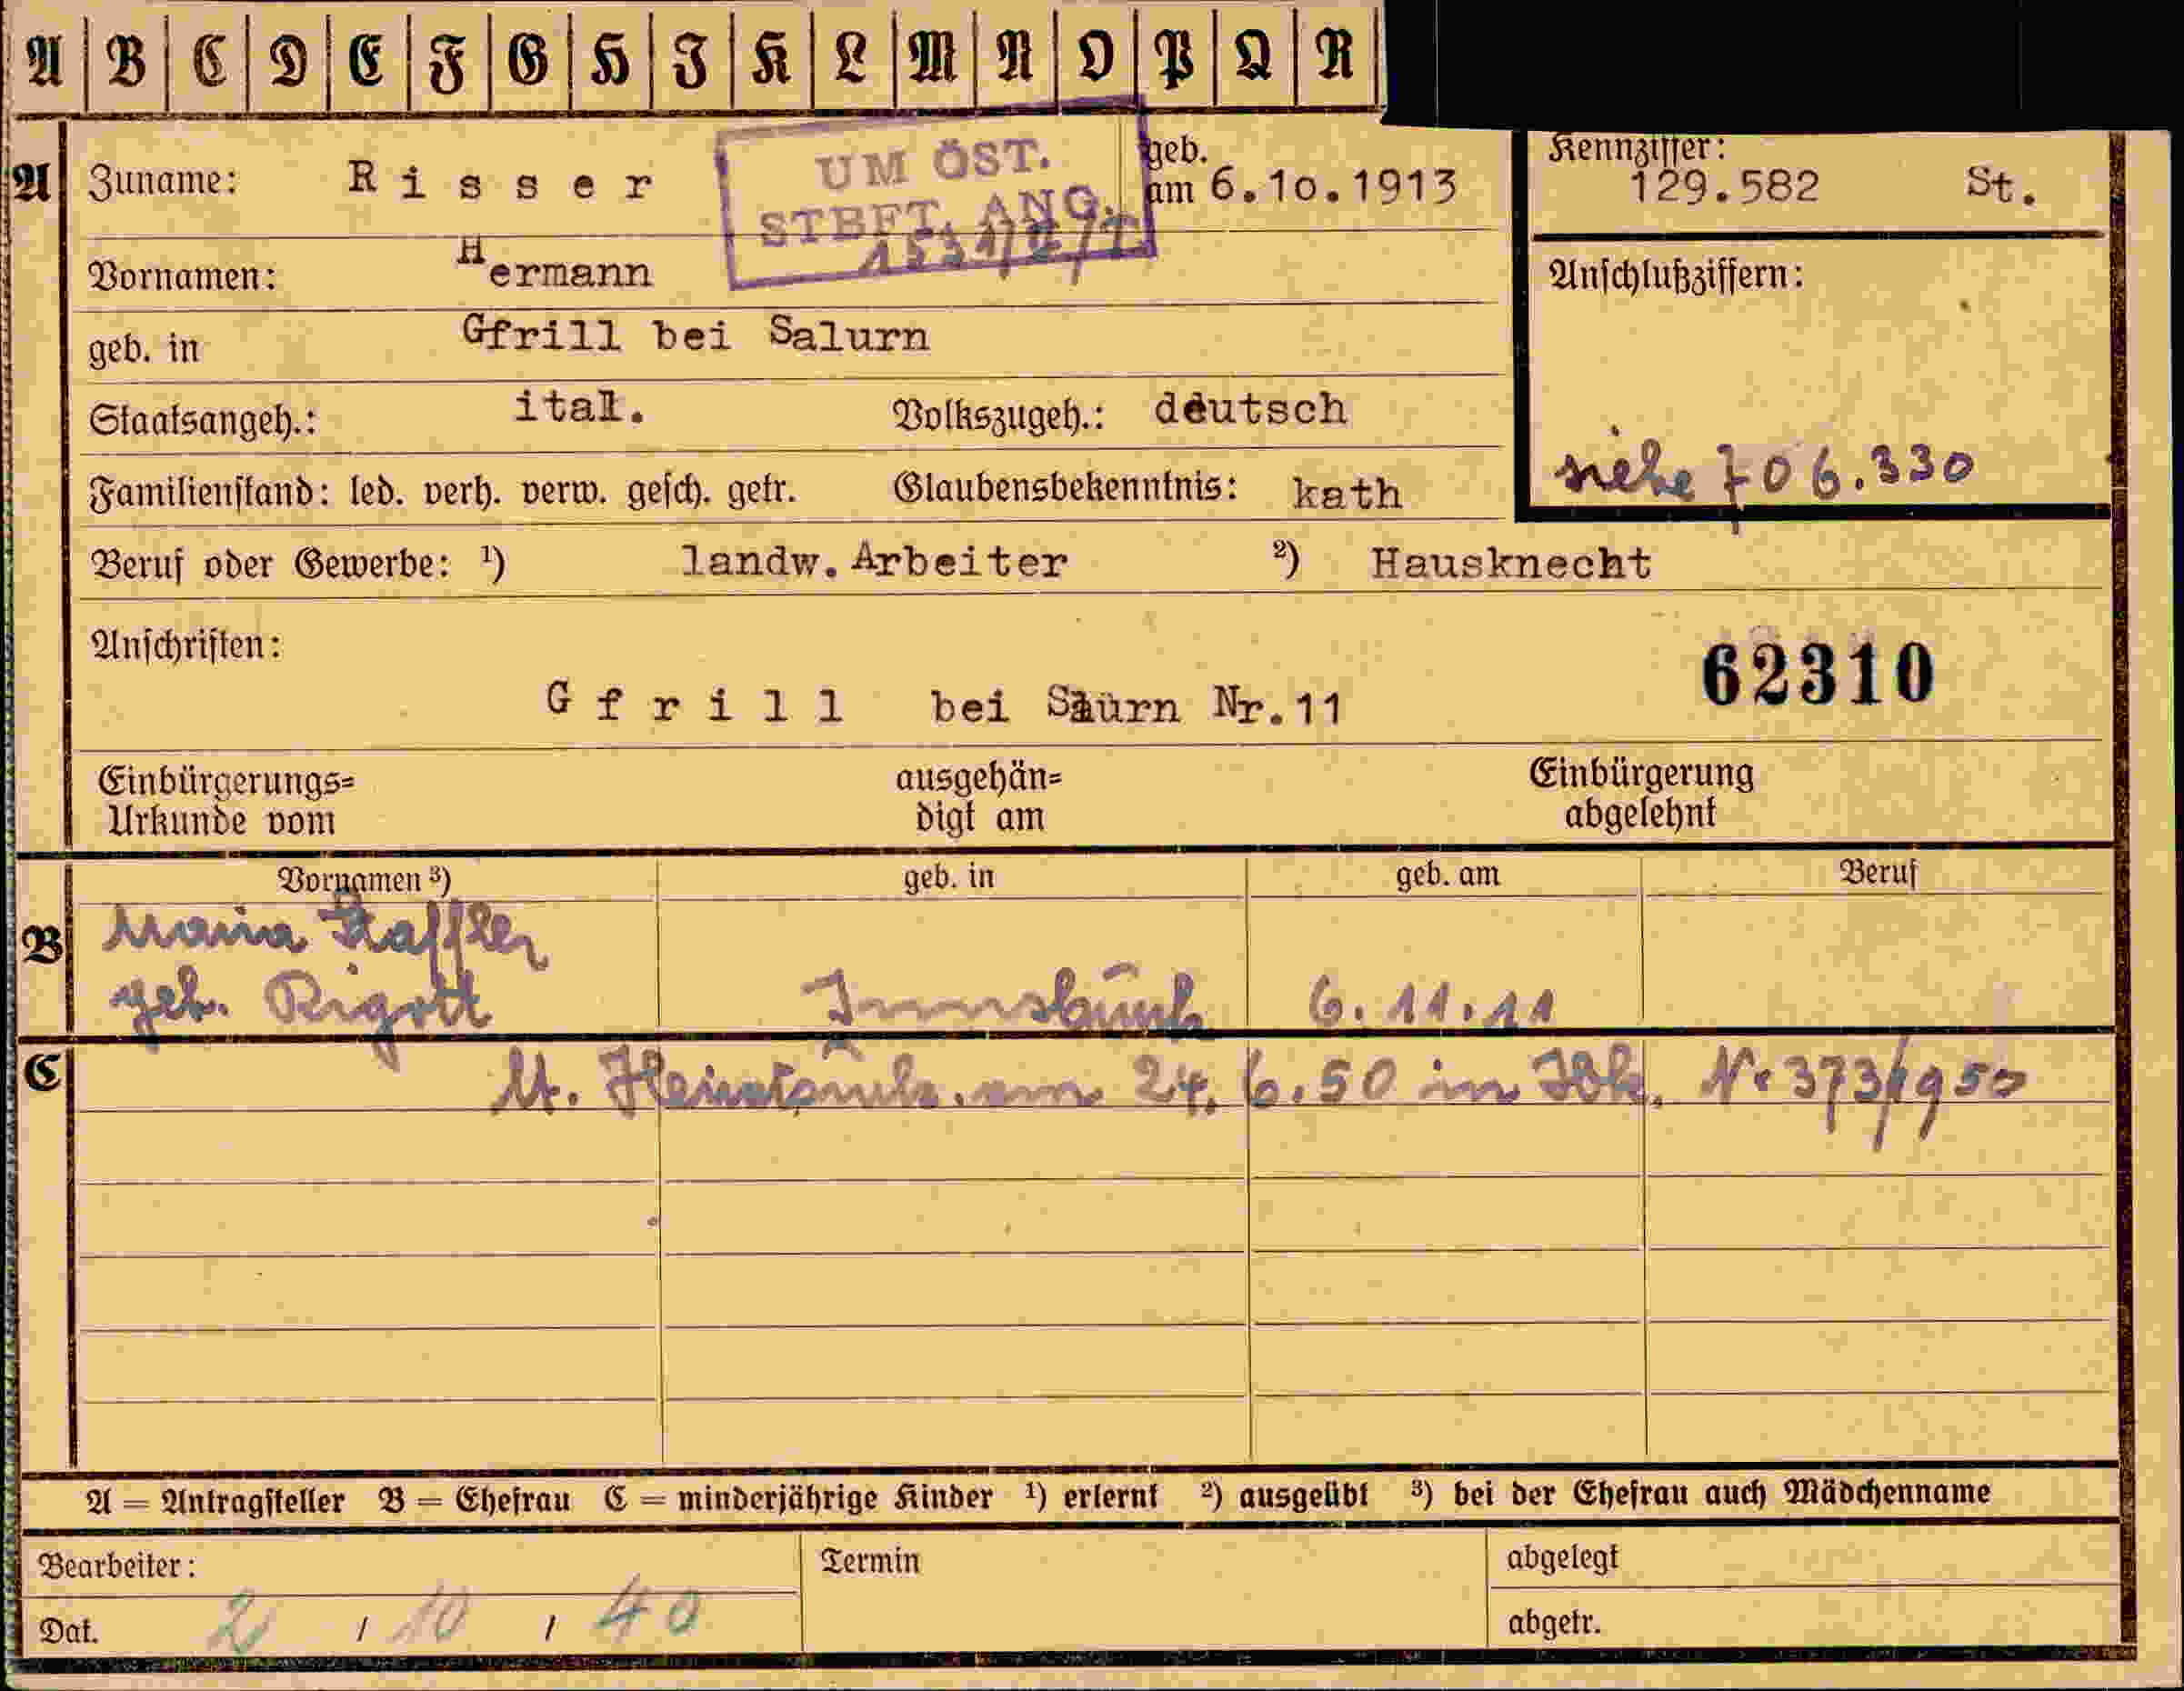 A B C D E F G H I K L M N O P Q R
A Zuname: Risser geb. am 6.10.1913
UM ÖST.
STBFT. ANG.
Kennziffer: 129.582 St.
Vornamen: Hermann
Anschlußziffern:
geb. in Gfrill bei Salurn
Staatsangeh.: ital. Volkszugeh.: deutsch
siehe 706.330
Familienstand: led. verh. verw. gesch. getr. Glaubensbekenntnis: kath
Beruf oder Gewerbe: ¹) landw. Arbeiter ²) Hausknecht
Anschriften:
62310
Gfrill bei Nr.11
Einbürgerungs= Urkunde vom ausgehän= digt am Einbürgerung abgelehnt
Vornamen ³) geb. in geb. am Beruf
B Maria
geb. Rigott Innsbruck 6.11.11
C lt. am 24.6.50 in Ibk. Nr 373/1950
A = Antragsteller B = Ehefrau C = minderjährige Kinder ¹) erlernt ²) ausgeübt ³) bei der Ehefrau auch Mädchenname
Bearbeiter: Termin abgelegt
Dat. 2 / 10 / 40 abgetr.